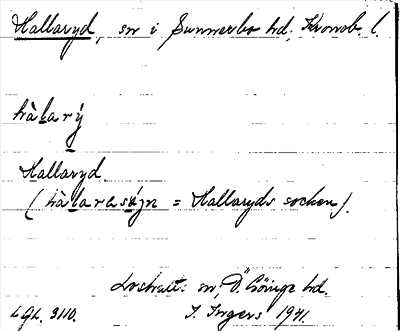 Hallaryd, sn i Sunnerbo hd, Kronob. l.
hàlarý
Hallaryd.
(hàlaresájn = Hallaryds socken).
sn, Ö. Göinge hd.
LGL. 3110.
I. Ingers 1941.